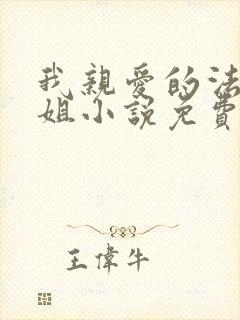 我親愛的法
姐小說免費
王偉牛